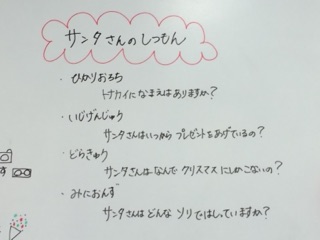 サンタさんのしつもん
・ひかりおろち
トナカイになまえはありますか?
・いじげんじゅう
サンタさんはいつからプレゼントをあげているの?
・どらきゅう
サンタさんはなんでクリスマスにしかこないの?
・みにおんず
サンタさんはどんなソリではしっていますか?
す